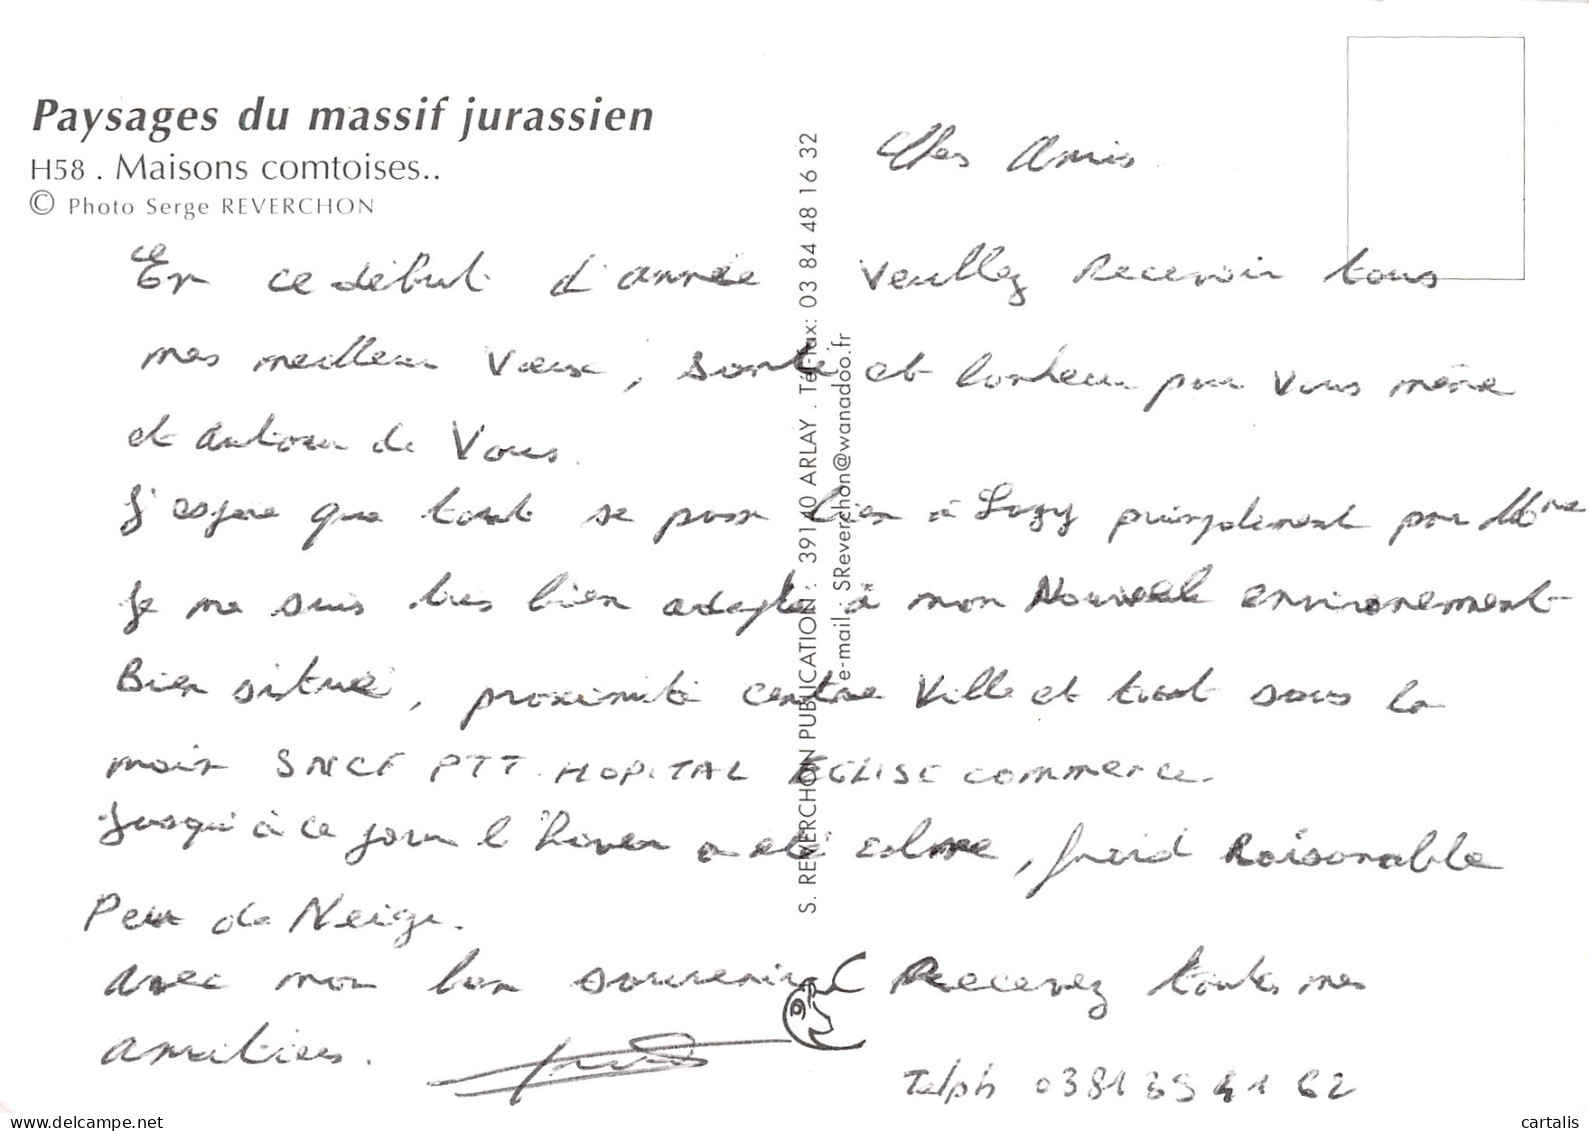 Paysages du massif jurassien
H58 . Maisons comtoises..
© Photo Serge REVERCHON
S. REVERCHON PUBLICATION : 39140 ARLAY . Tél-fax: 03 84 48 16 32
e-mail : SReverchon@wanadoo.fr
Chers Amis
En ce début d'année Veuillez Recevoir tous
mes meilleur Vœux, santé et bonheur pour Vous même
et autour de Vous.
J'espère que tout se passe bien à Luzy principalement pour
Je me suis très bien adapté à mon Nouveau environement
Bien situé, proximité centre Ville et tout sous la
main SNCF PTT HOPITAL EGLISE commerce.
Jusqu'à ce jour l'hiver a été calme, froid Raisonable
Peu de Neige.
avec mon bon souvenir Recevez toutes mes
amitiés.
Telph 0381 41 62
cartalis